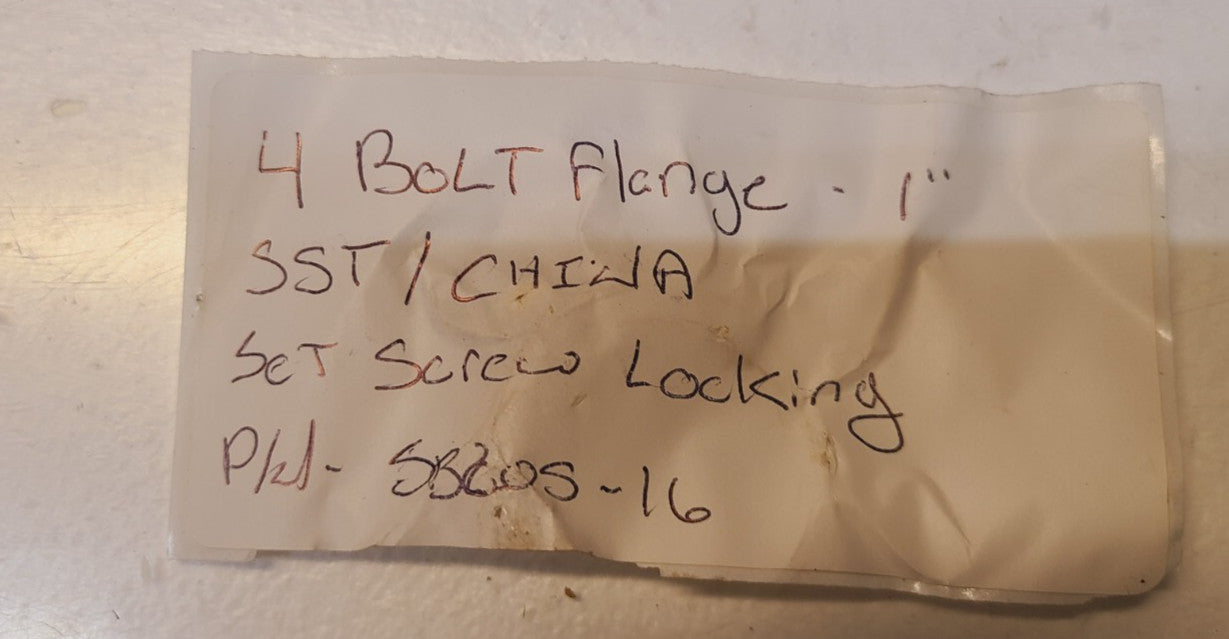 4 BOLT Flange - 1"
SST/CHINA
SeT Screw Locking
P/N- SB205-16